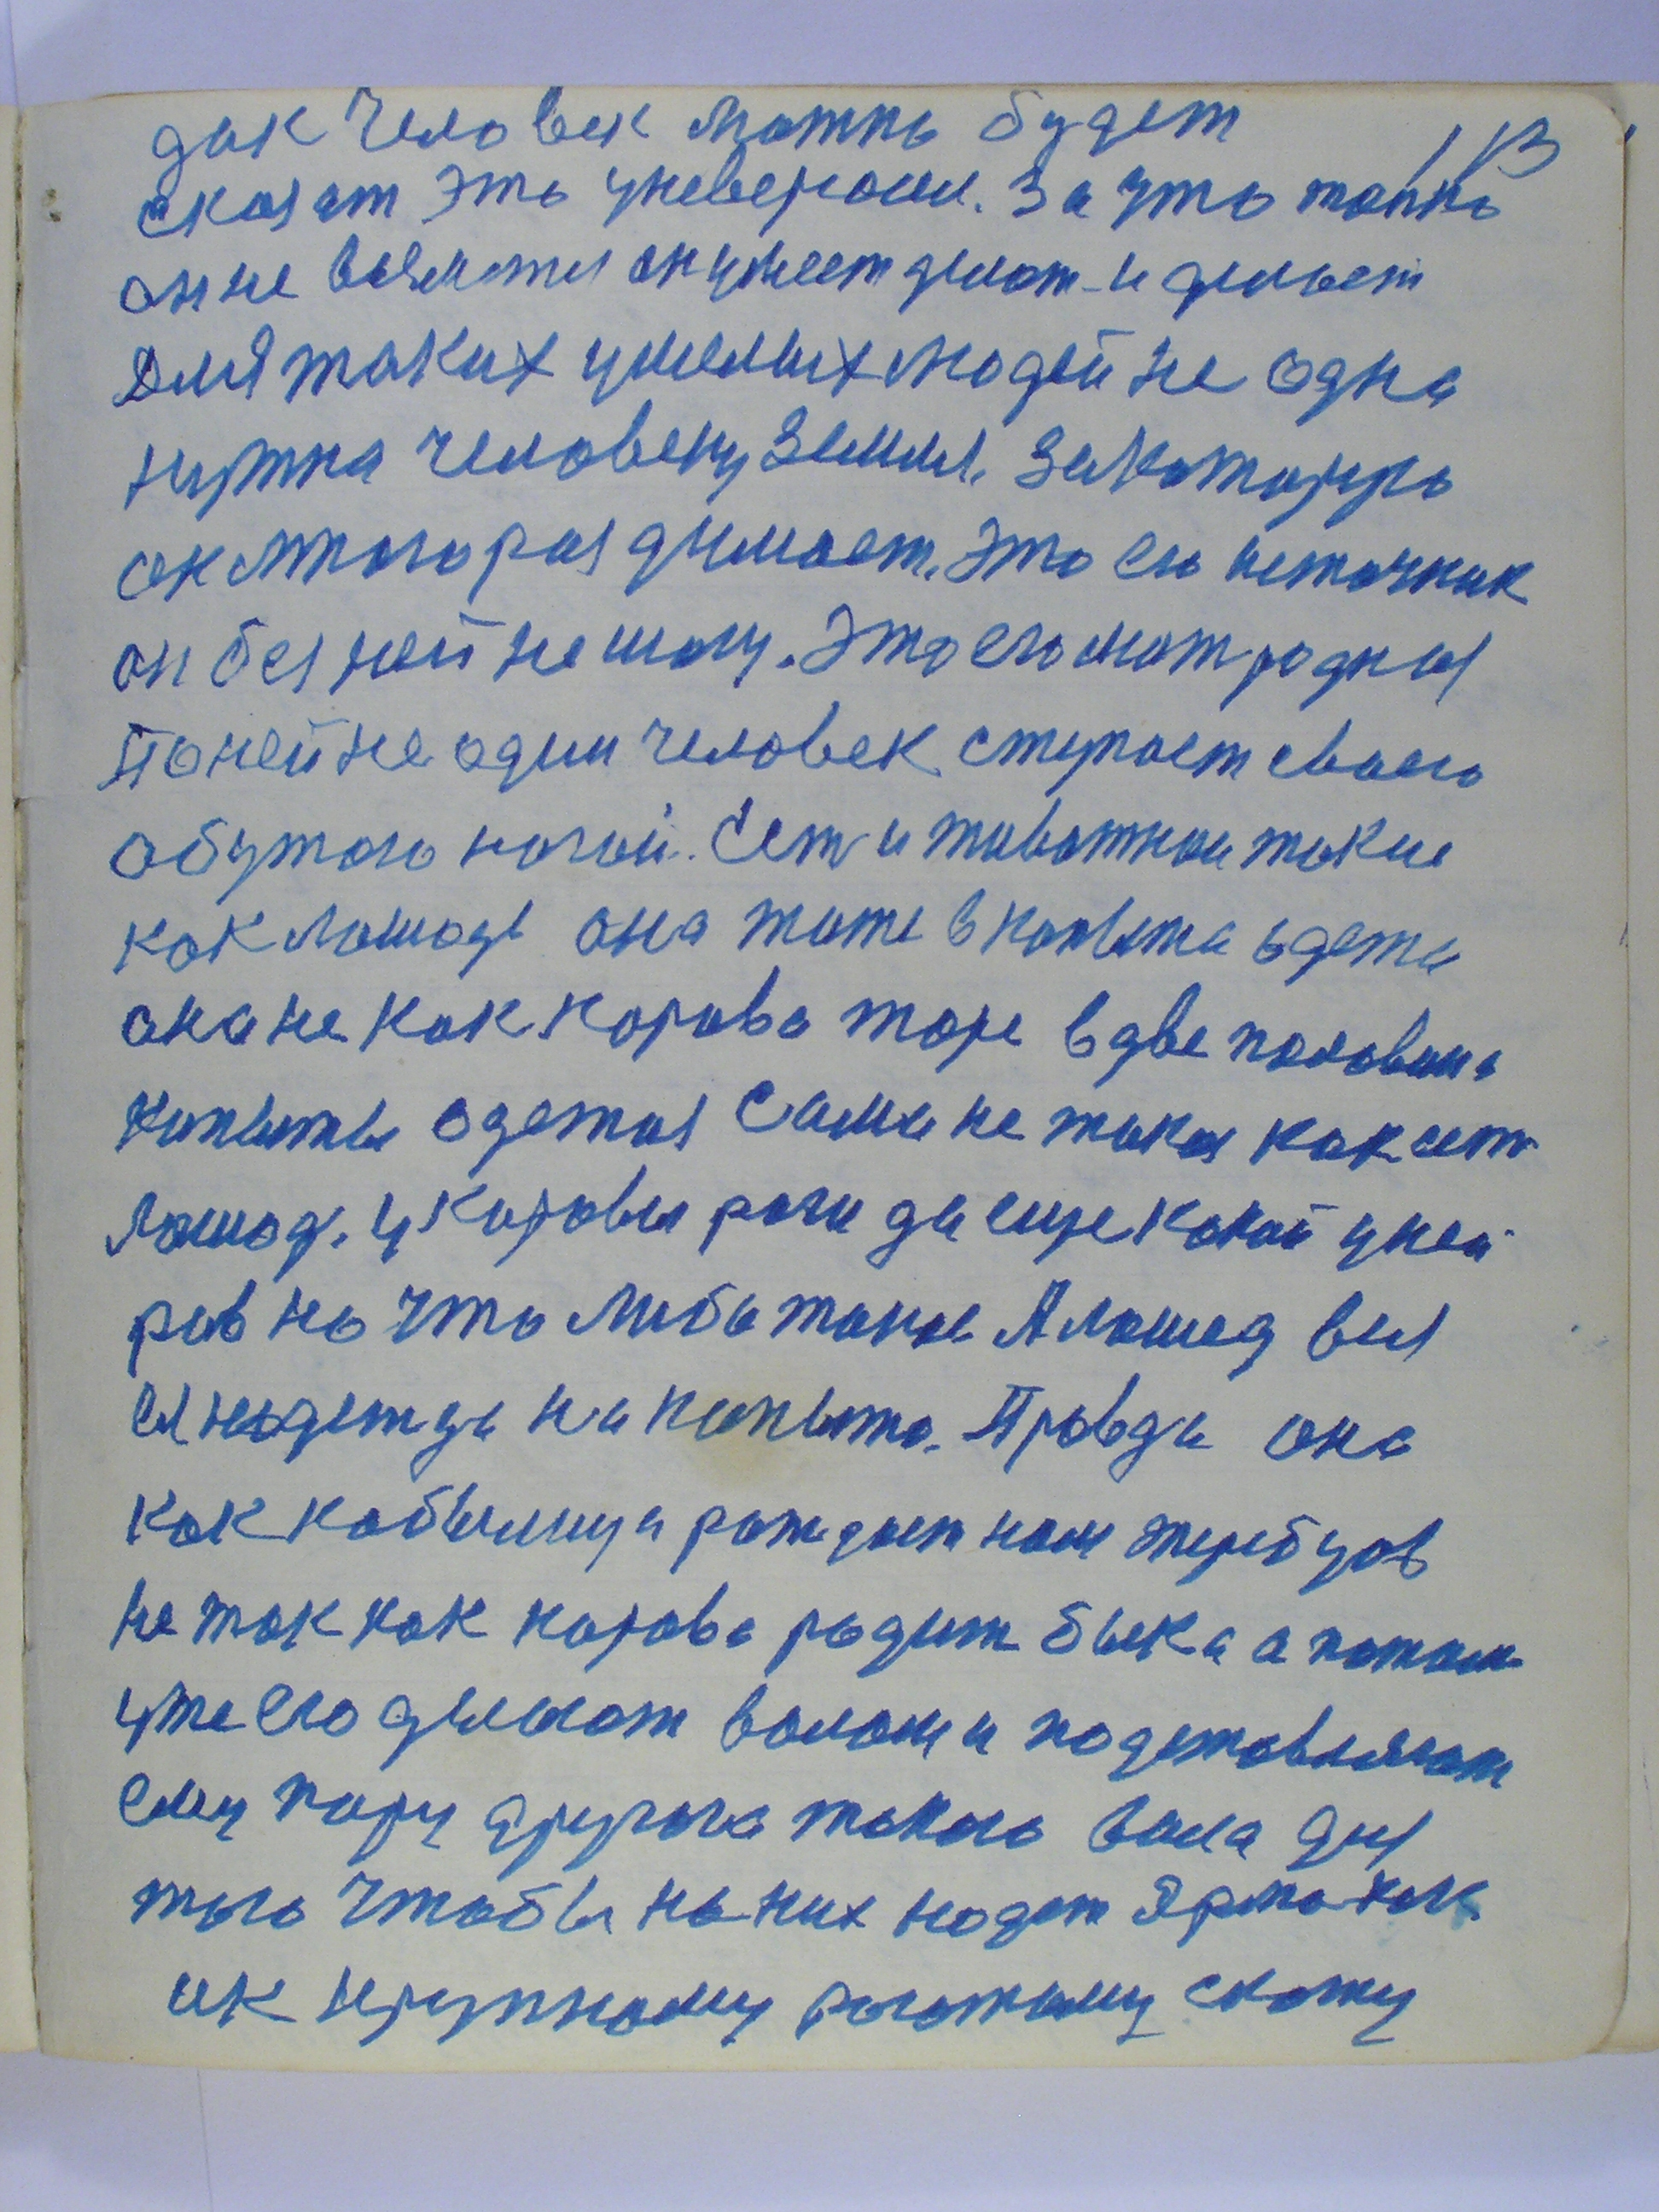 113
дак человек можно будет
сказат это уневерсал. За что только
он не возмется он умеет делат и делает
Для таких умелых людей не одна
нужна человеку земля. За которую
он много раз думает. Это его источник
он без ней не шагу. Это его мат родная
По ней не один человек ступает своею
обутою ногой. Ест и животное такие
как лошадь она тоже в копыта одета
она не как корова тоже в две половины
копыты одетая Сама не такая как ест
лошад. у коровы роги да еще какой у ней
равно что либо такое А лошад вся
ея надежда на копыто. Правда она
как кобылица рождает нам жеребцов
не так как корова родит быка а потом
уже его делают волом и подставляют
ему пару другога такого вола для
того чтобы на них надет Ярмо как
ик крупному рогатому скоту